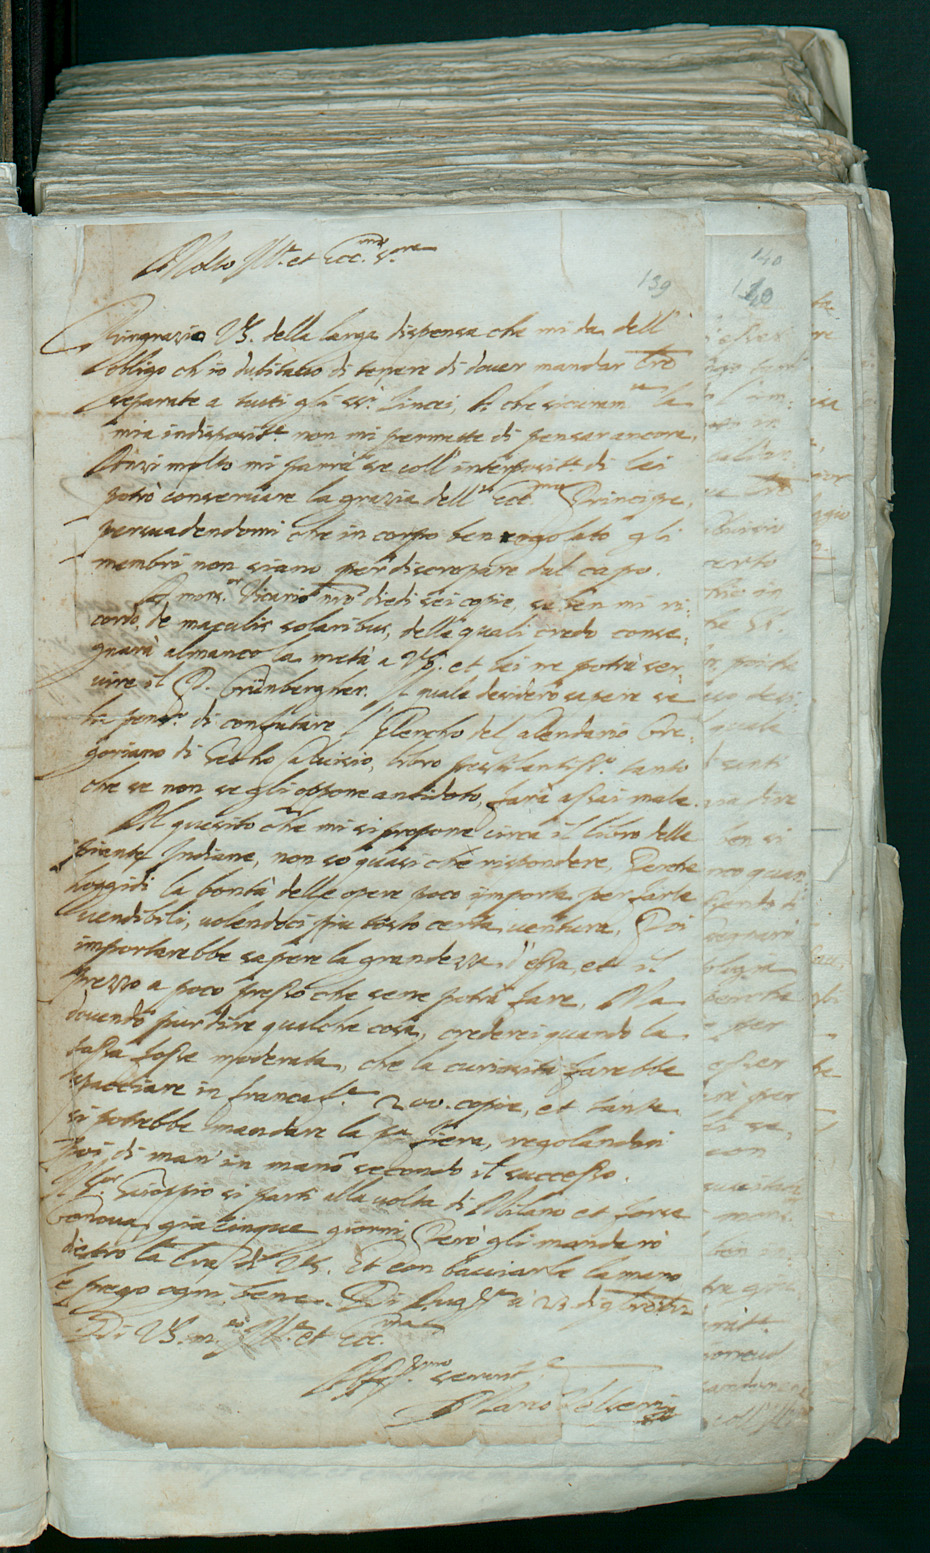 Molto Ill.re et Ecc.mo S.ore
139
140
Ringrazio VS. della larga dispensa che mi da dell'
obligo ch'io dubitavo di tenere di dover mandar lre
separate a tutti gli SS.ri Lincei, il che sicuram.te la
mia indisposit.e non mi permette di pensar ancora.
Anzi molto mi parrà se coll'interposit.e di lei
potrò conservare la grazia dell' Ecc.mo Principe,
persuadendomi che in corpo ben regolato gli
membri non siano per discrepare dal capo.
A mons.or Vicario nro diedi sei copie, se ben mi ri-
cordo, de maculis solaribus, delle quali credo conse-
gnarà almanco la metà a VS. et lei ne potrà ser-
vire il P. Grünbergher. Il quale desidero sapere se
ha pens.o di confutare l'Elencho del Calendario Gre-
goriano di Setho Calvisio, libro pestilentiss.o tanto
che se non se gli oppone antidoto, farà assai male.
Al quesito che mi si propone circa il libro delle
piante Indiane, non so quasi che rispondere, perche
hoggidi la bontà delle opere poco importa per farle
vendibili, volendoci piu tosto certa ventura. Poi
importarebbe sapere la grandezza d'essa, et il
prezzo a poco presso che se ne potrà fare. Ma
dovendo pur dire qualche cosa, crederei quando la
tassa fosse moderata, che la curiosità farebbe
spacciare in Francof.te 200. copie, et tante
si potrebbe mandare la p.a fiera, regolandosi
poi di man' in mano secondo il successo.
Il S.or Scioppio si partì alla volta di Milano et forse
Genova, già cinque giorni. Però gli manderò
dietro la lra di VS. Et con bacciarle la mano
le prego ogni bene. Di Aug.ta à 23 di 9bre
Di VS. m.to Ill.re et Ecc.ma
Aff.mo servit.e
Marco Velseri